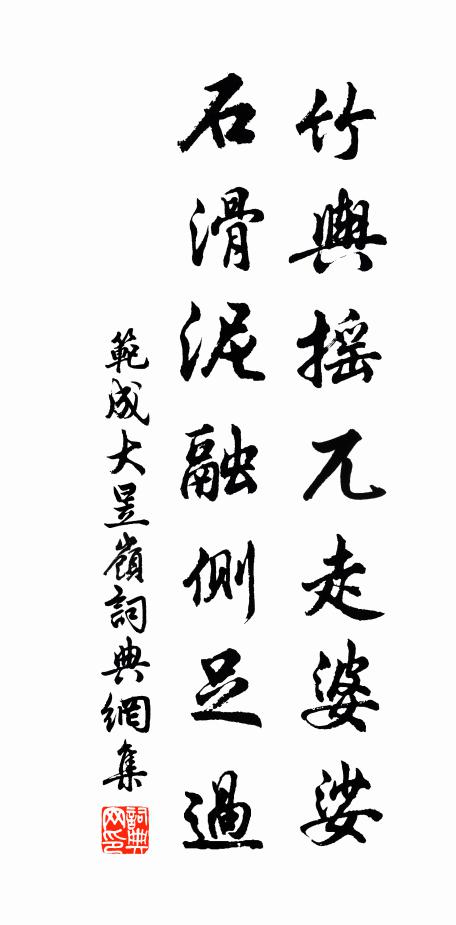 竹輿搖兀走婆娑
石滑泥融側足過
範成大昱嶺詞典網集
詞典网印